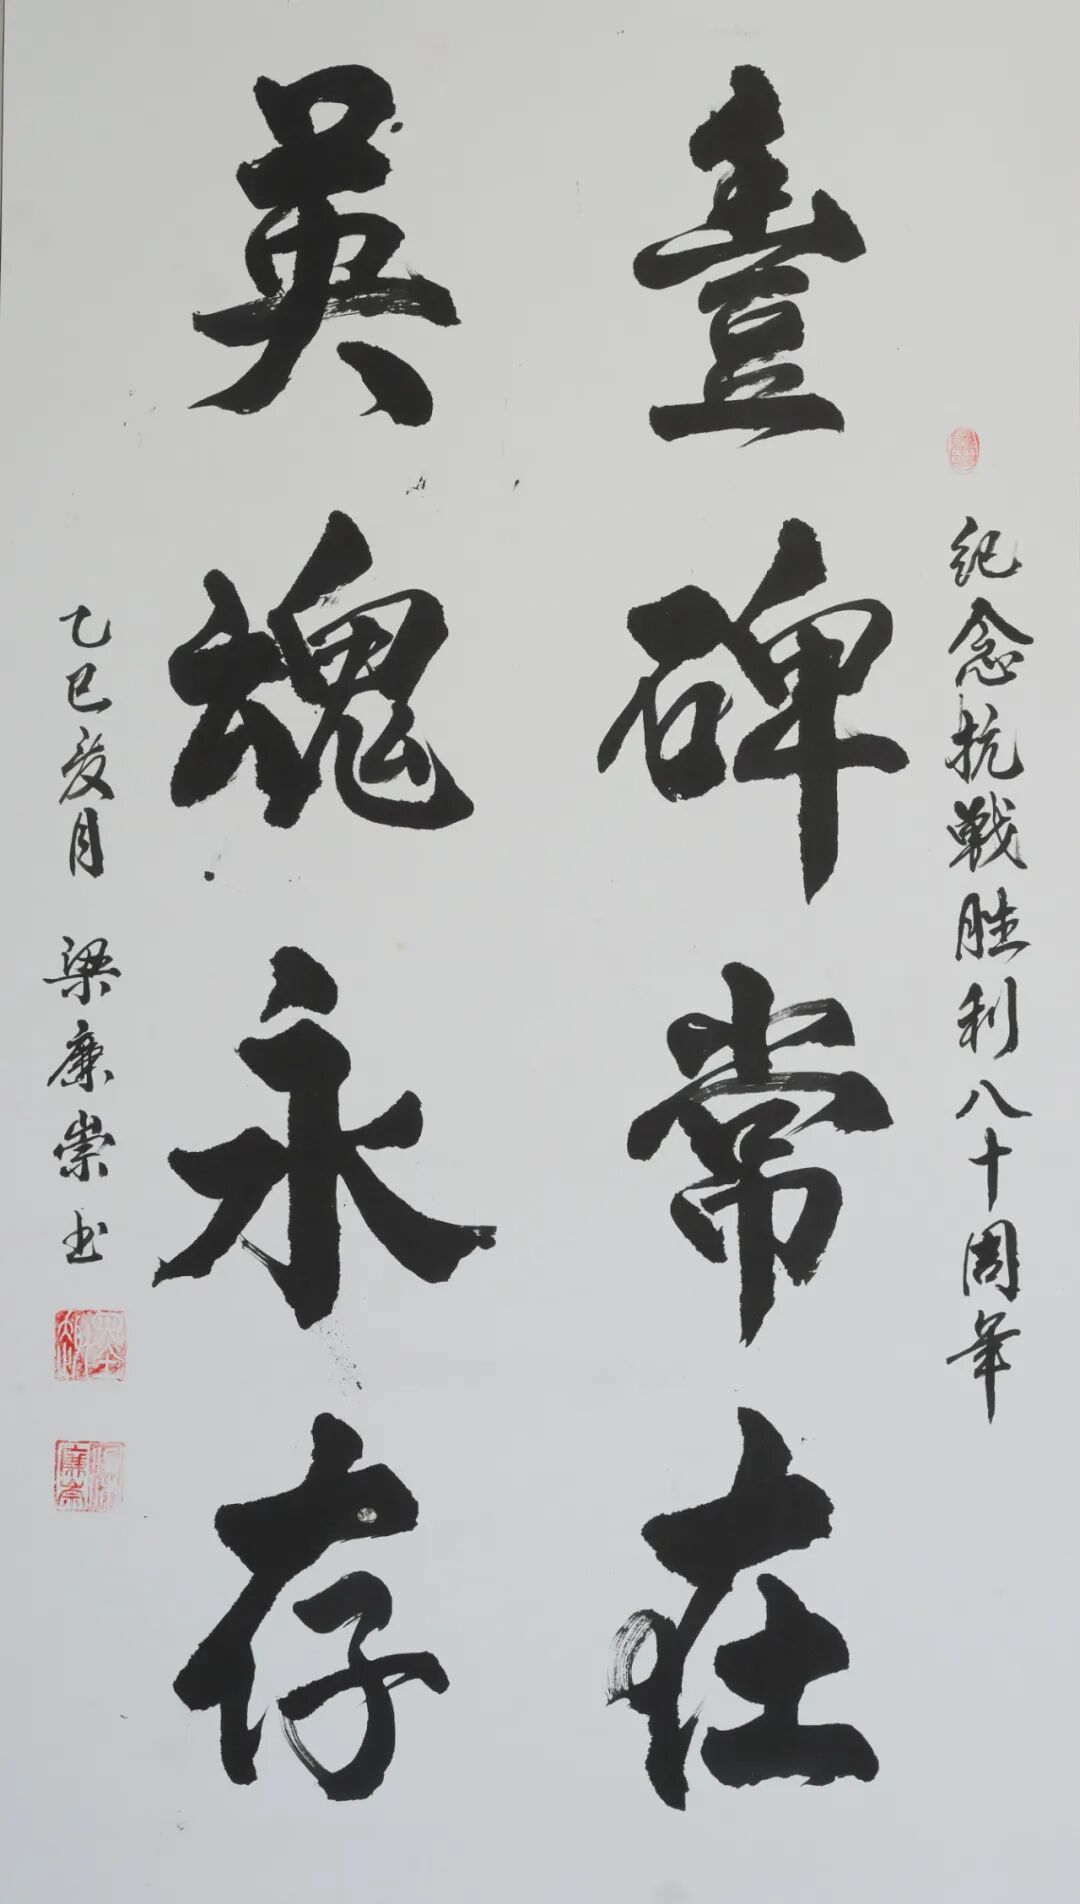 纪念抗戰胜利八十周年
豐碑常在
英魂永存
乙巳夏月 梁廉崇书